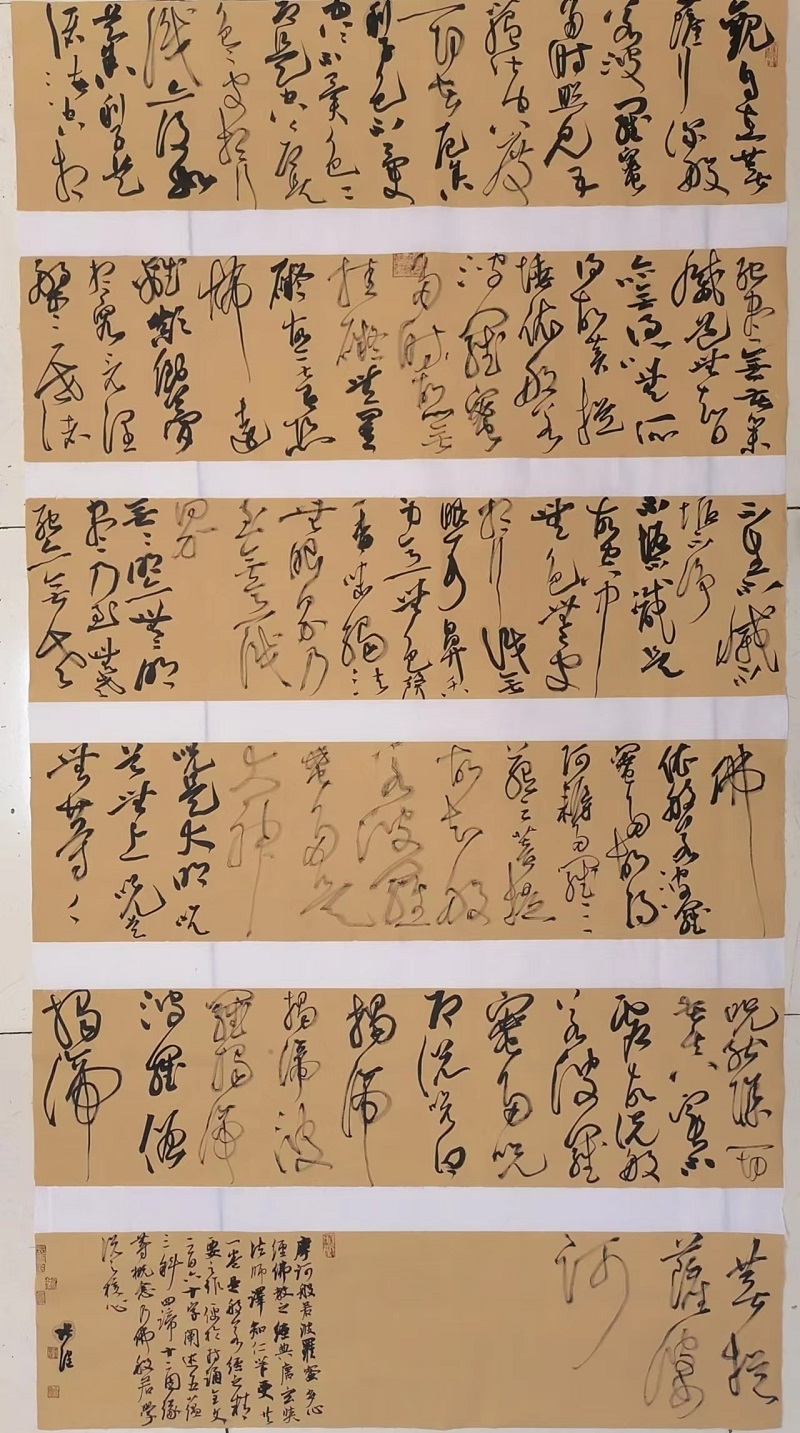 觀自在菩
薩行深般
若波羅蜜
多時照見五
蘊皆空度
一切苦厄舍
利子色不異
空空不異色々
即是空々即是
色受想行
識亦復如
是舍利子是
諸法空相
死盡無苦集
滅道無智
亦無得以無所
得故菩提
埵依般若
波羅蜜
多時故無
掛礙無罣
礙故無有恐
怖遠
離顛倒夢
想究竟涅
槃三世諸
不生不滅不
垢不淨
不增不減是
故空中
無色無受
想行識無
眼耳鼻舌
身意無色聲
香味觸法
無眼界乃
至無意識
界
無々明亦無々明
盡乃至無老
死亦無老
佛
依般若波羅
蜜多故得
阿耨多羅三
藐三菩提
故知般
若波羅
蜜多是
大神
咒是大明咒
是無上咒是
無等々
咒能除一切
苦真實不
虛故說般
若波羅
蜜多咒
即說咒曰
揭諦
揭諦波
羅揭諦
波羅僧
揭諦
菩提
薩婆
訶
摩訶般若波羅蜜多心
經佛教之經典唐玄奘
法師譯知仁筆更共
一卷是般若經之精
要之作便於持誦全文
二百六十字闡述五蘊
三科四諦十二因緣
等概念乃佛般若學
說之核心